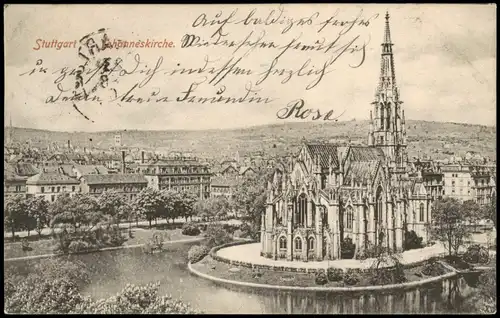 Stuttgart Johanneskirche.
Auf baldiges frohes
Wiedersehn freut sich
u. grüßt Dich indessen herzlich
Deine treue Freundin
Rose